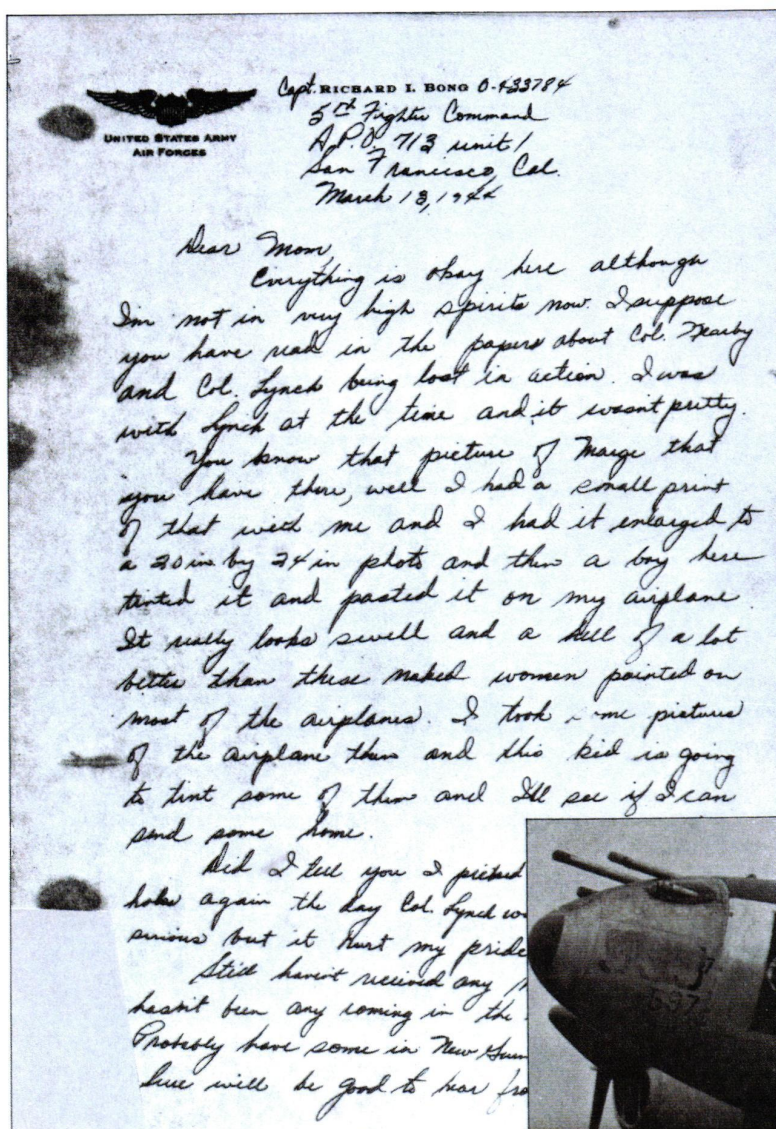 Capt. RICHARD I. BONG O-433784
UNITED STATES ARMY
AIR FORCES
5th Fighter Command
A.P.O. 713 unit 1
San Francisco, Cal.
March 13, 1944
Dear Mom,
Everything is okay here although
I'm not in very high spirits now. I suppose
you have read in the papers about Col. Nearby
and Col. Lynch being lost in action. I was
with Lynch at the time and it wasnt pretty.
You know that picture of Marge that
you have there, well I had a small print
of that with me and I had it enlarged to
a 20 in by 24 in photo and then a boy here
tinted it and pasted it on my airplane
It really looks swell and a hell of a lot
better than these naked women painted on
most of the airplanes. I took me pictures
of the airplane then and this kid is going
to tint some of them and I'll see if I can
send some home.
Did I tell you I picked
holes again the day Col. Lynch
serious but it hurt my pride
Still havent received any
hasnt been any coming in the
Probably have some in New
Sure will be good to hear